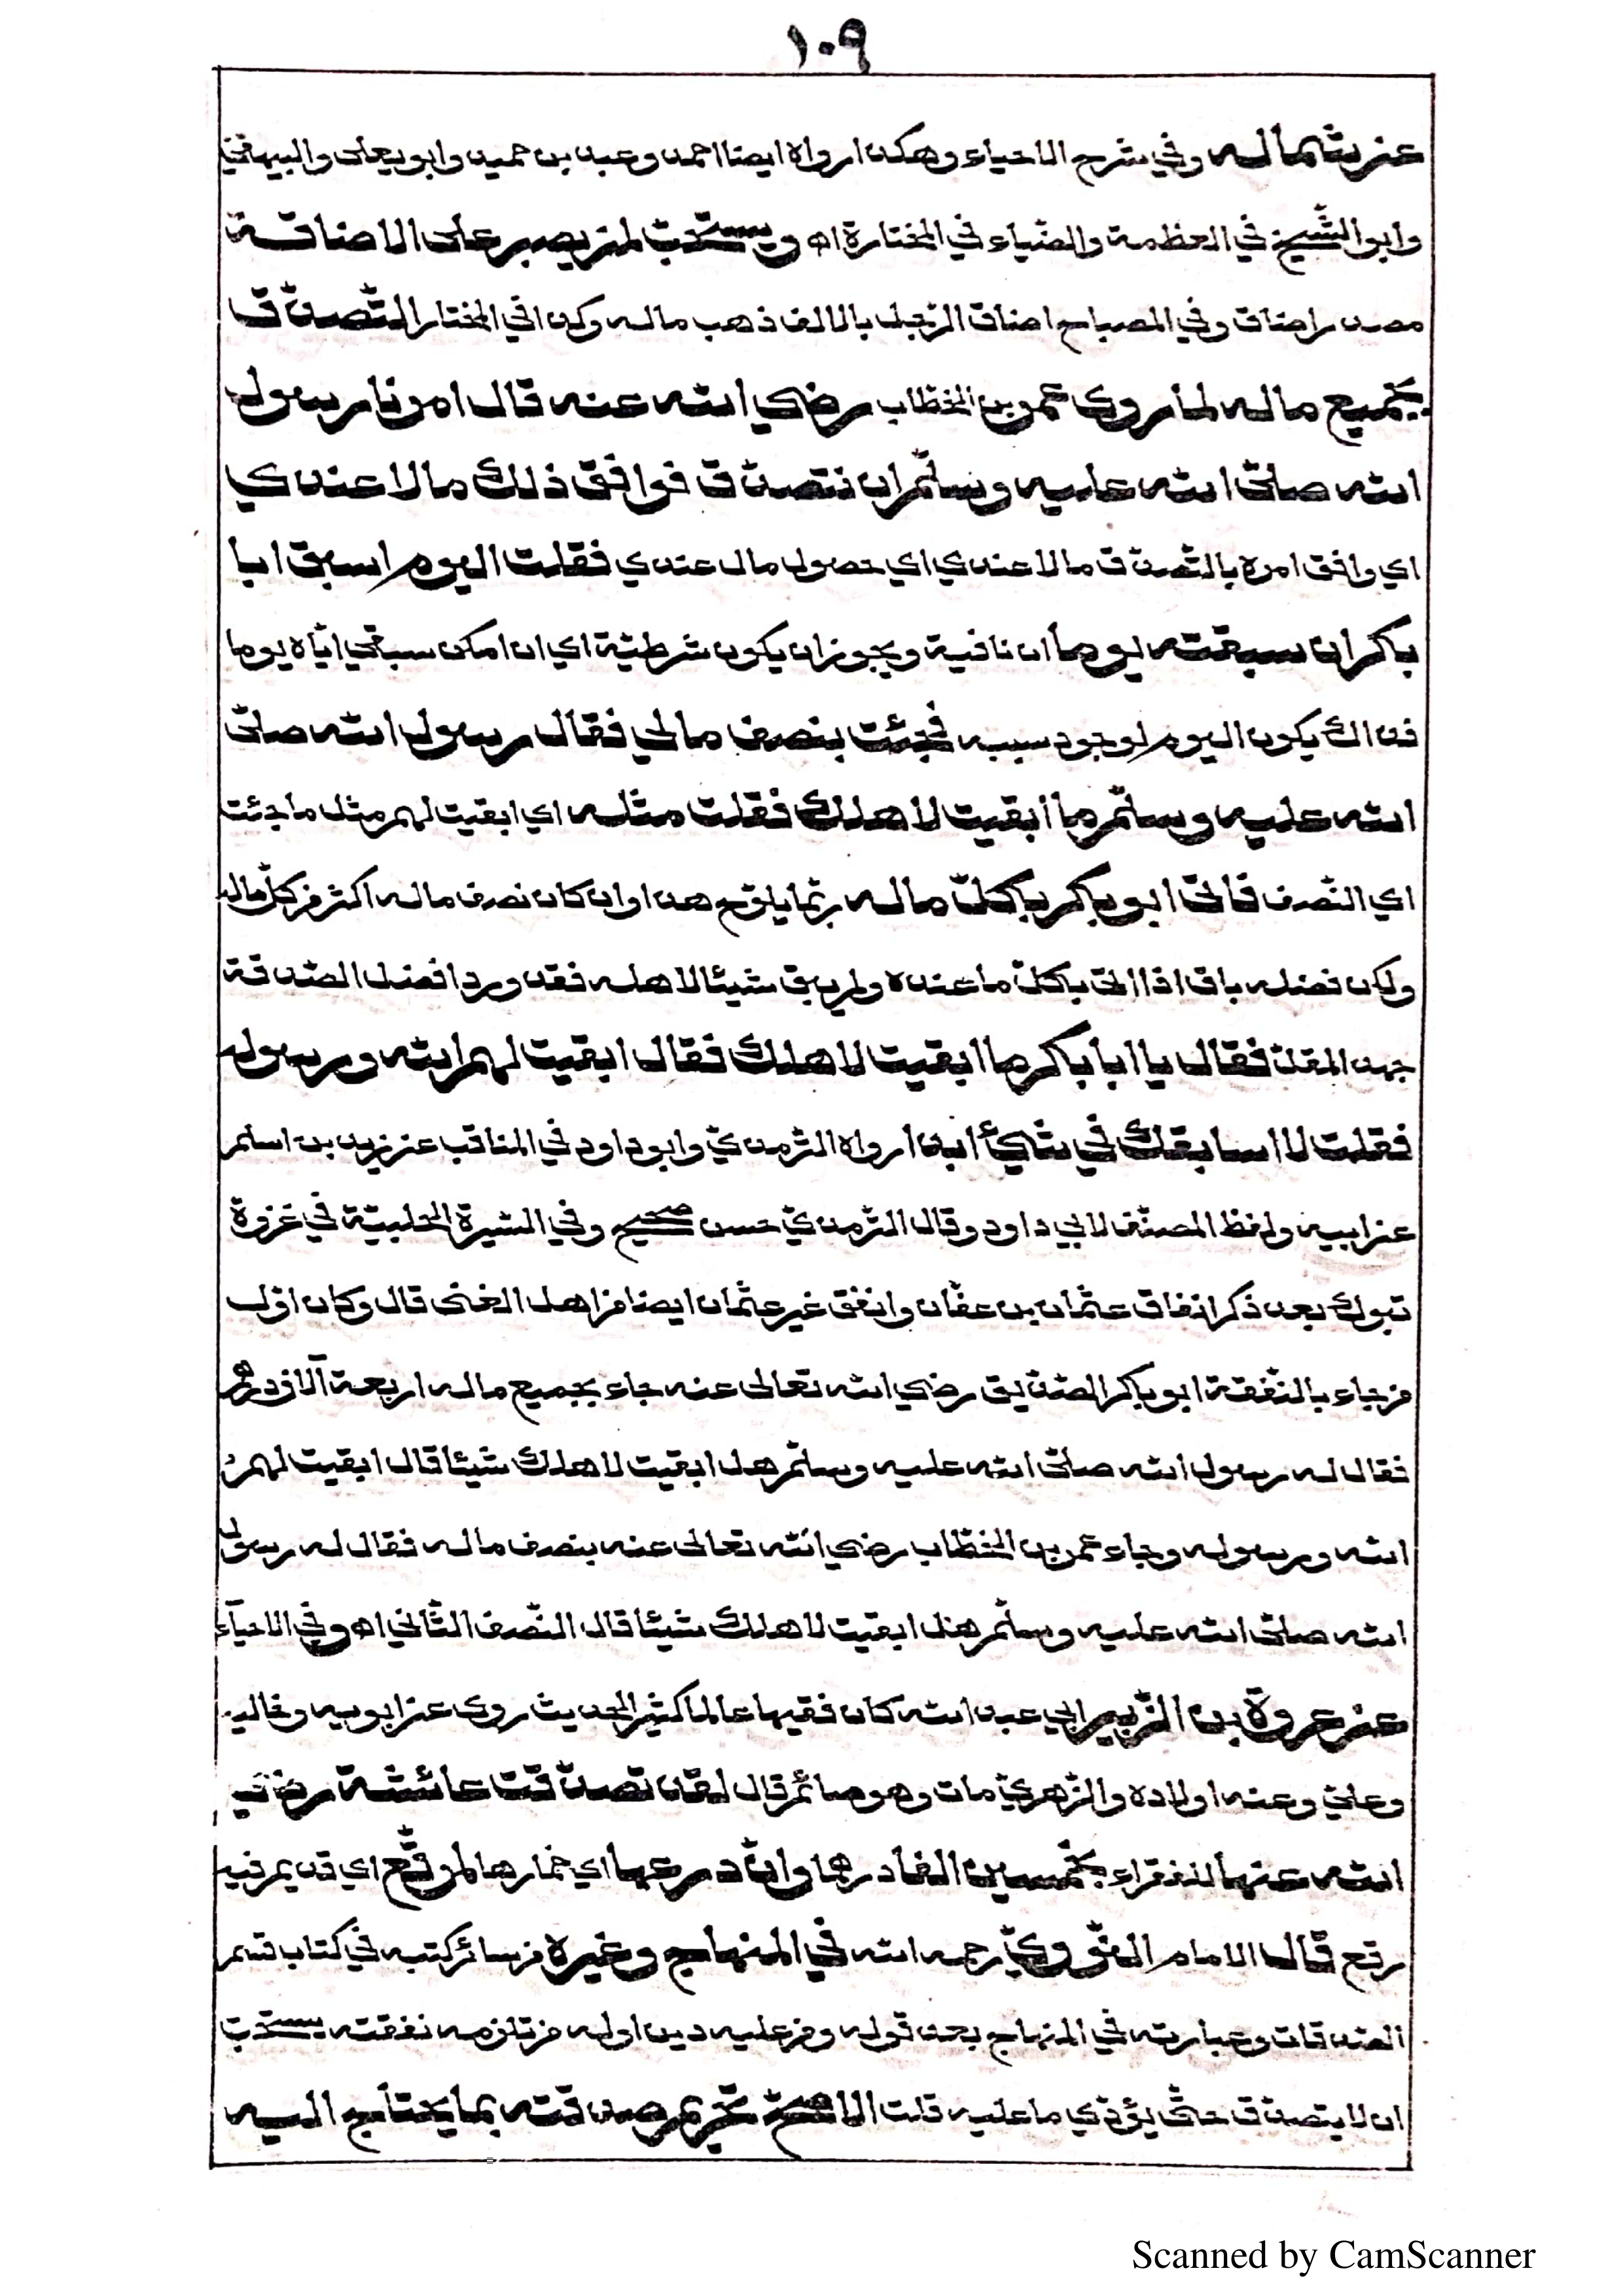 ١٠٩
عن شماله وفي شرح الاحياء وهكذا رواه ايضا احمد وعبد بن حميد وابو يعلى والبيهقي
وابو الشيخ في العظمة والضياء في المختارة اه ويستحب لمن يصبر على الاضاقة
مصدر اضاق وفي المصباح اضاق الرجل بالالف ذهب ماله وكذا في المختار التصدق
بجميع ماله لما روى عمر بن الخطاب رضي الله عنه قال امرنا رسول
الله صلى الله عليه وسلم ان نتصدق فوافق ذلك مالا عندي
اي وافق امره بالتصدق مالا عندي اي حصول مال عندي فقلت اليوم اسبق ابا
باكر ان سبقته يوما ان نافية ويجوز ان يكون شرطية اي ان امكن سبقي اياه يوما
فذاك يكون اليوم لوجود سببه فجئت بنصف مالي فقال رسول الله صلى
الله عليه وسلم ما ابقيت لاهلك فقلت مثله اي ابقيت لهم مثل ما جئت
اي النصف فاتى ابو باكر باكل ماله ربما يلوح هذا وان كان نصف ماله اكثر من كل ماله
ولكن فضله باق اذا اتى بكل ما عنده ولم يبق شيئا لاهله فقد ورد افضل الصدقة
جهد المقل فقال يا ابا باكر ما ابقيت لاهلك فقال ابقيت لهم الله ورسوله
فقلت لا اسابقك في شيئ ابدا رواه الترمذي وابو داود في المناقب عن زيد بن اسلم
عن ابيه ولفظ المصنف لابي داود وقال الترمذي حسن صحيح وفي السيرة الحلبية في غزوة
تبوك بعد ذكر انفاق عثمان بن عفان وانفق غير عثمان ايضا من اهل الغنى قال وكان اول
من جاء بالنفقة ابو باكر الصديق رضي الله تعالى عنه جاء بجميع ماله اربعة آلاف درهم
فقال له رسول الله صلى الله عليه وسلم هل ابقيت لاهلك شيئا قال ابقيت لهم
الله ورسوله وجاء عمر بن الخطاب رضي الله تعالى عنه بنصف ماله فقال له رسول
الله صلى الله عليه وسلم هل ابقيت لاهلك شيئا قال النصف الثاني اه وفي الاحيآء
عن عروة بن الزبير ابي عبد الله كان فقيها عالما كثير الحديث روى عن ابويه وخاليه
وعلي وعنه اولاده والزهري مات وهو صائم قال لقد تصدقت عائشة رضي
الله عنها للفقراء بخمسين الفا درهما وان درعها اي خمارها لمرقع اي قديم فيه
رقع قال الامام النووي رحمه الله في المنهاج وغيره من سائر كتبه في كتاب قسم
الصدقات وعبارته في المنهاج بعد قوله ومن عليه دين او له من تلزمه نفقته يستحب
ان لا يتصدق حتى يؤدي ما عليه قلت الاصح تحريم صدقته بما يحتاج اليه
Scanned by CamScanner